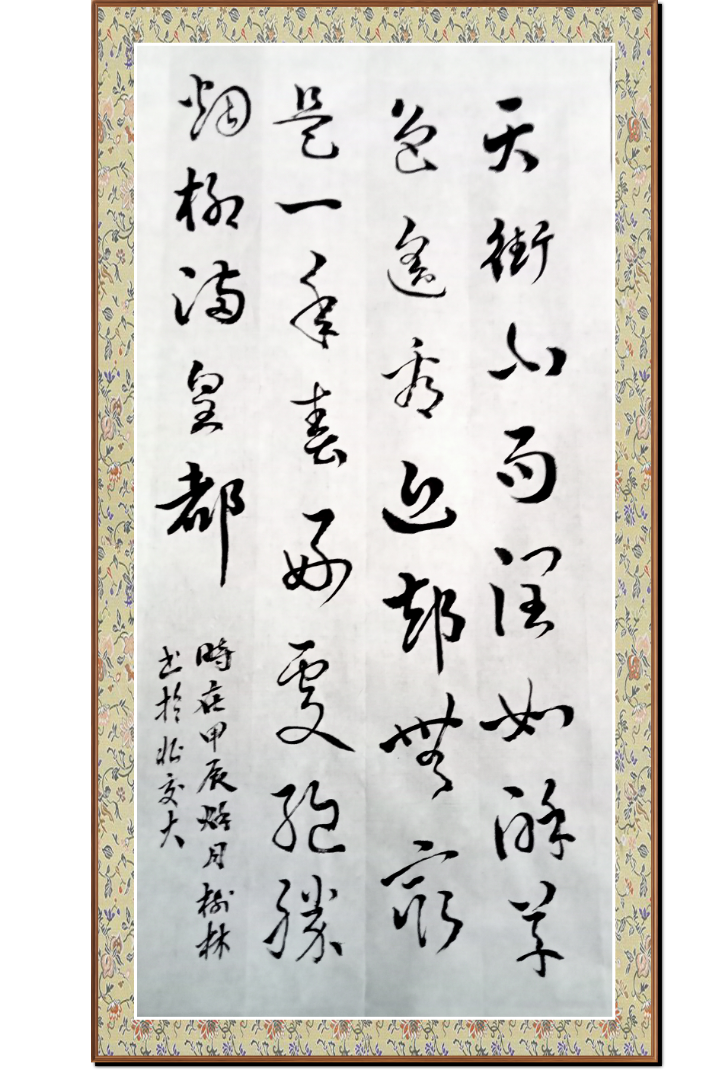 天街小雨润如酥草
色遥看近却無最
是一年春好處絕勝
烟柳满皇都
時在甲辰月樹林
书於北交大